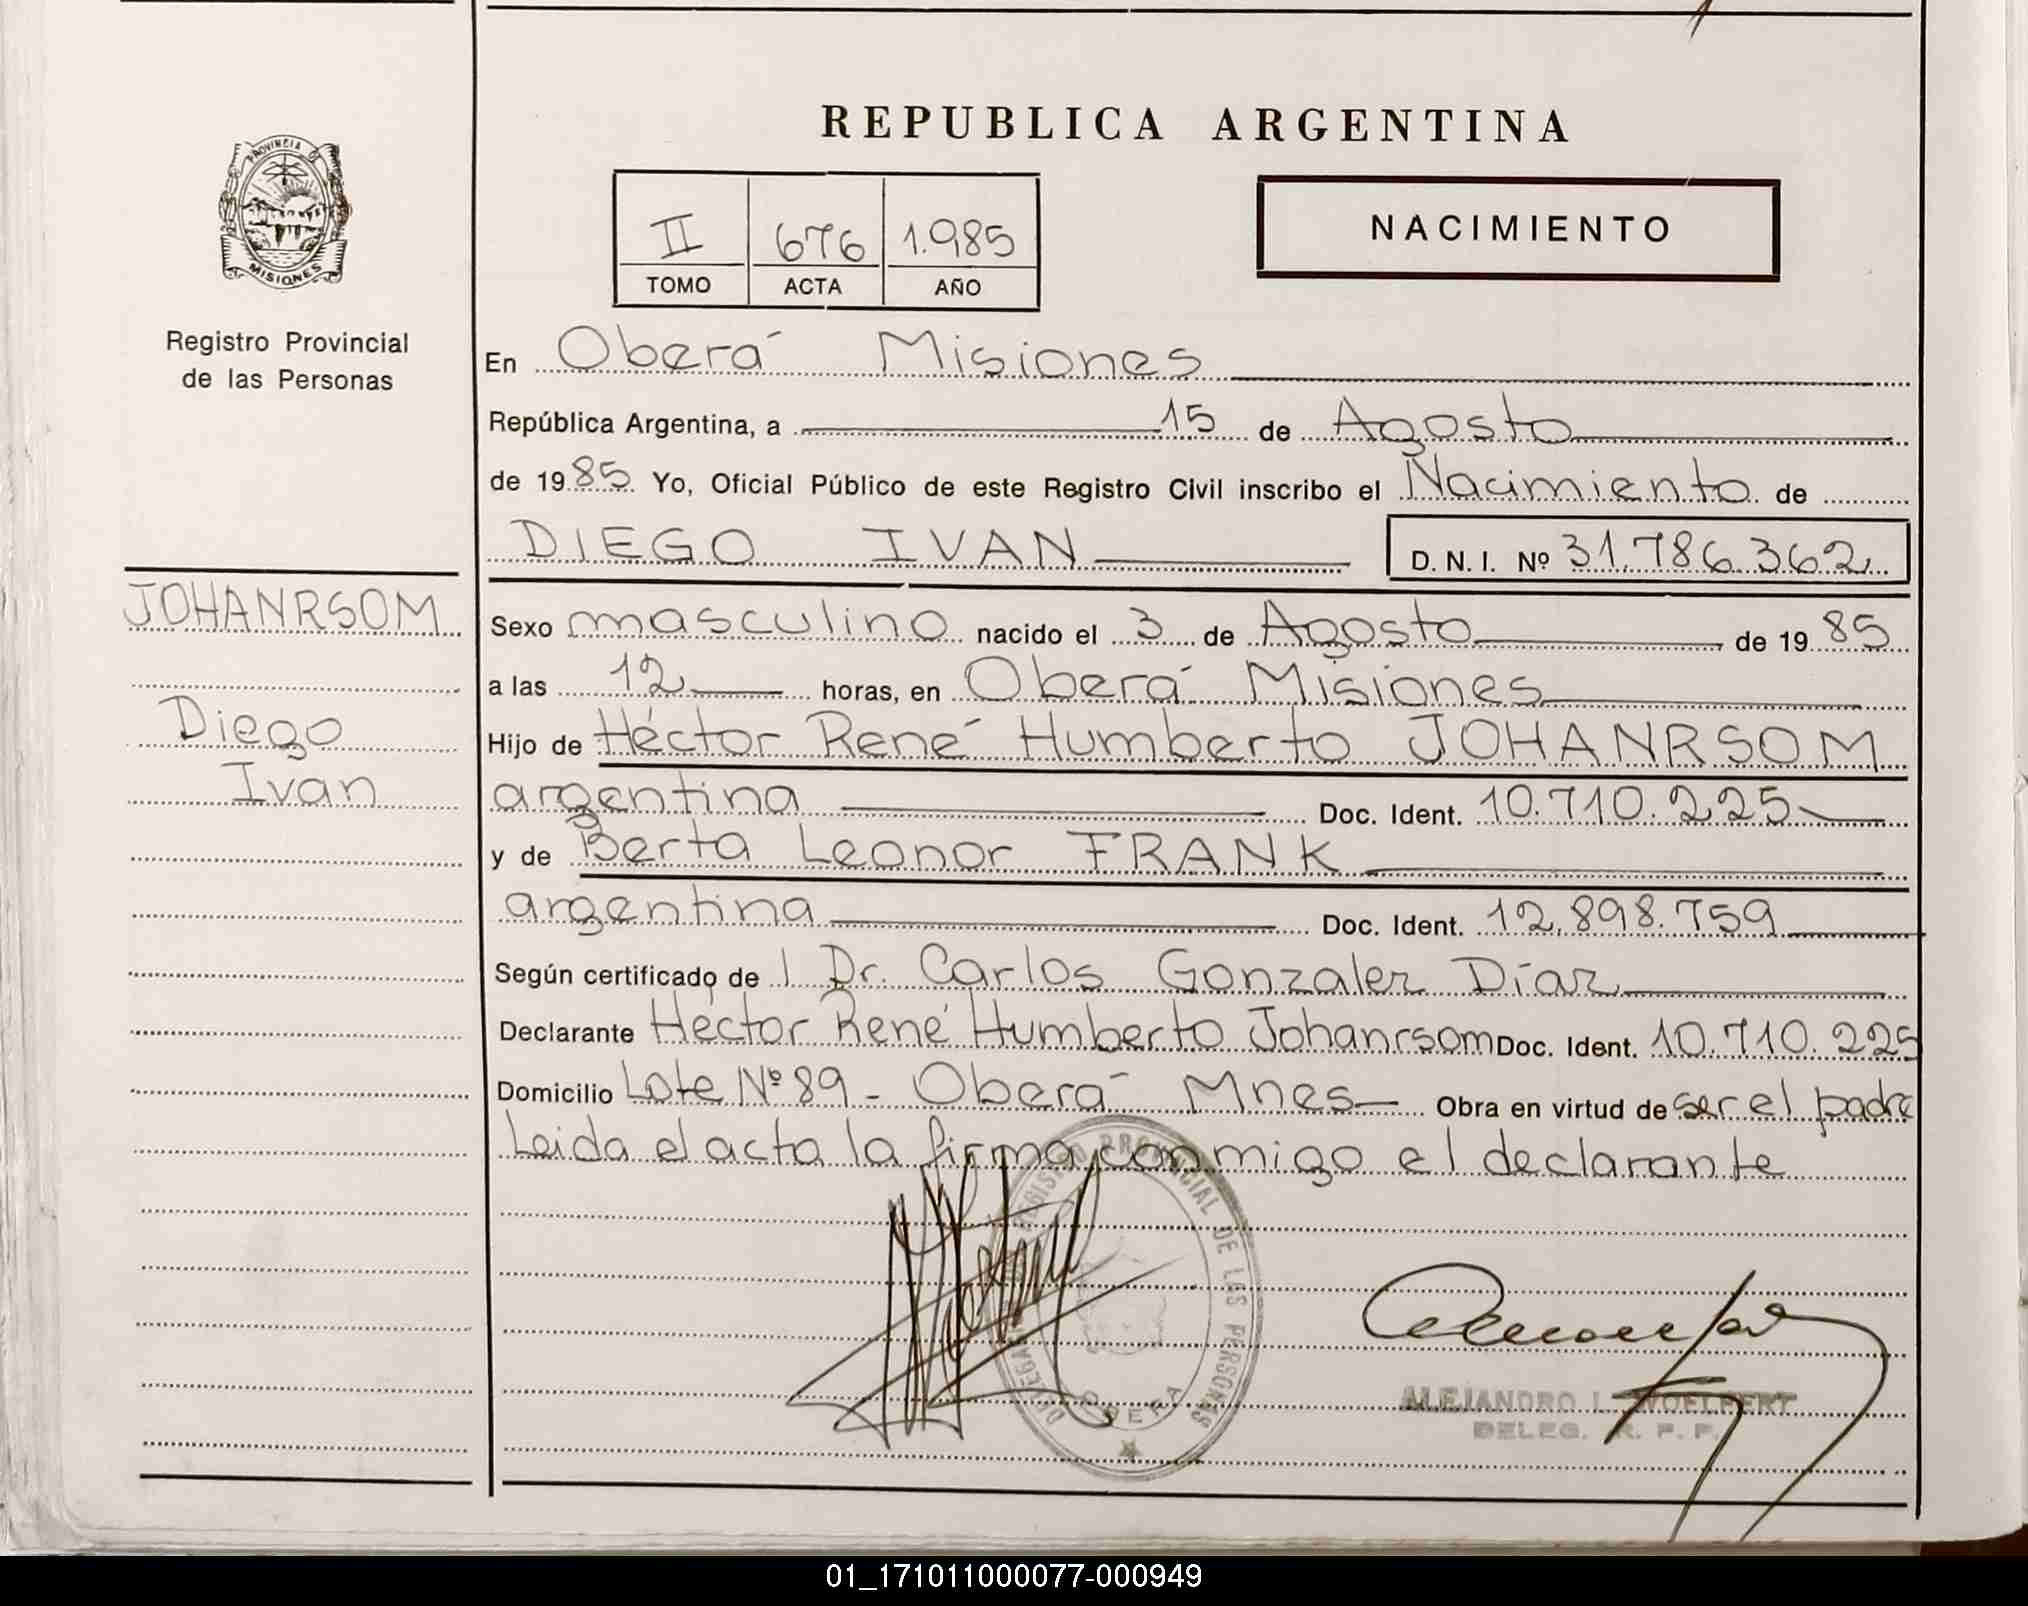 REPUBLICA ARGENTINA
PROVINCIA DE
MISIONES
Registro Provincial
de las Personas
II 676 1.985
TOMO ACTA AÑO
NACIMIENTO
En Oberá Misiones
República Argentina, a 15 de Agosto
de 1985 Yo, Oficial Público de este Registro Civil inscribo el Nacimiento de
DIEGO IVAN D. N. I. Nº 31.786.362
JOHANRSOM
Diego
Ivan
Sexo masculino nacido el 3 de Agosto de 1985
a las 12 horas, en Oberá Misiones
Hijo de Héctor René Humberto JOHANRSOM
argentina Doc. Ident. 10.710.225
y de Berta Leonor FRANK
argentina Doc. Ident. 12.898.759
Según certificado de l Dr. Carlos Gonzalez Díaz
Declarante Héctor René Humberto Johanrsom Doc. Ident. 10.710.225
Domicilio Lote Nº 89 - Oberá Mnes Obra en virtud de ser el padre
Leida el acta la firma conmigo el declarante
REGISTRO PROVINCIAL DE LAS PERSONAS
OBERA
ALEJANDRO L. WOELFERT
DELEG. R. P. P.
01_171011000077-000949